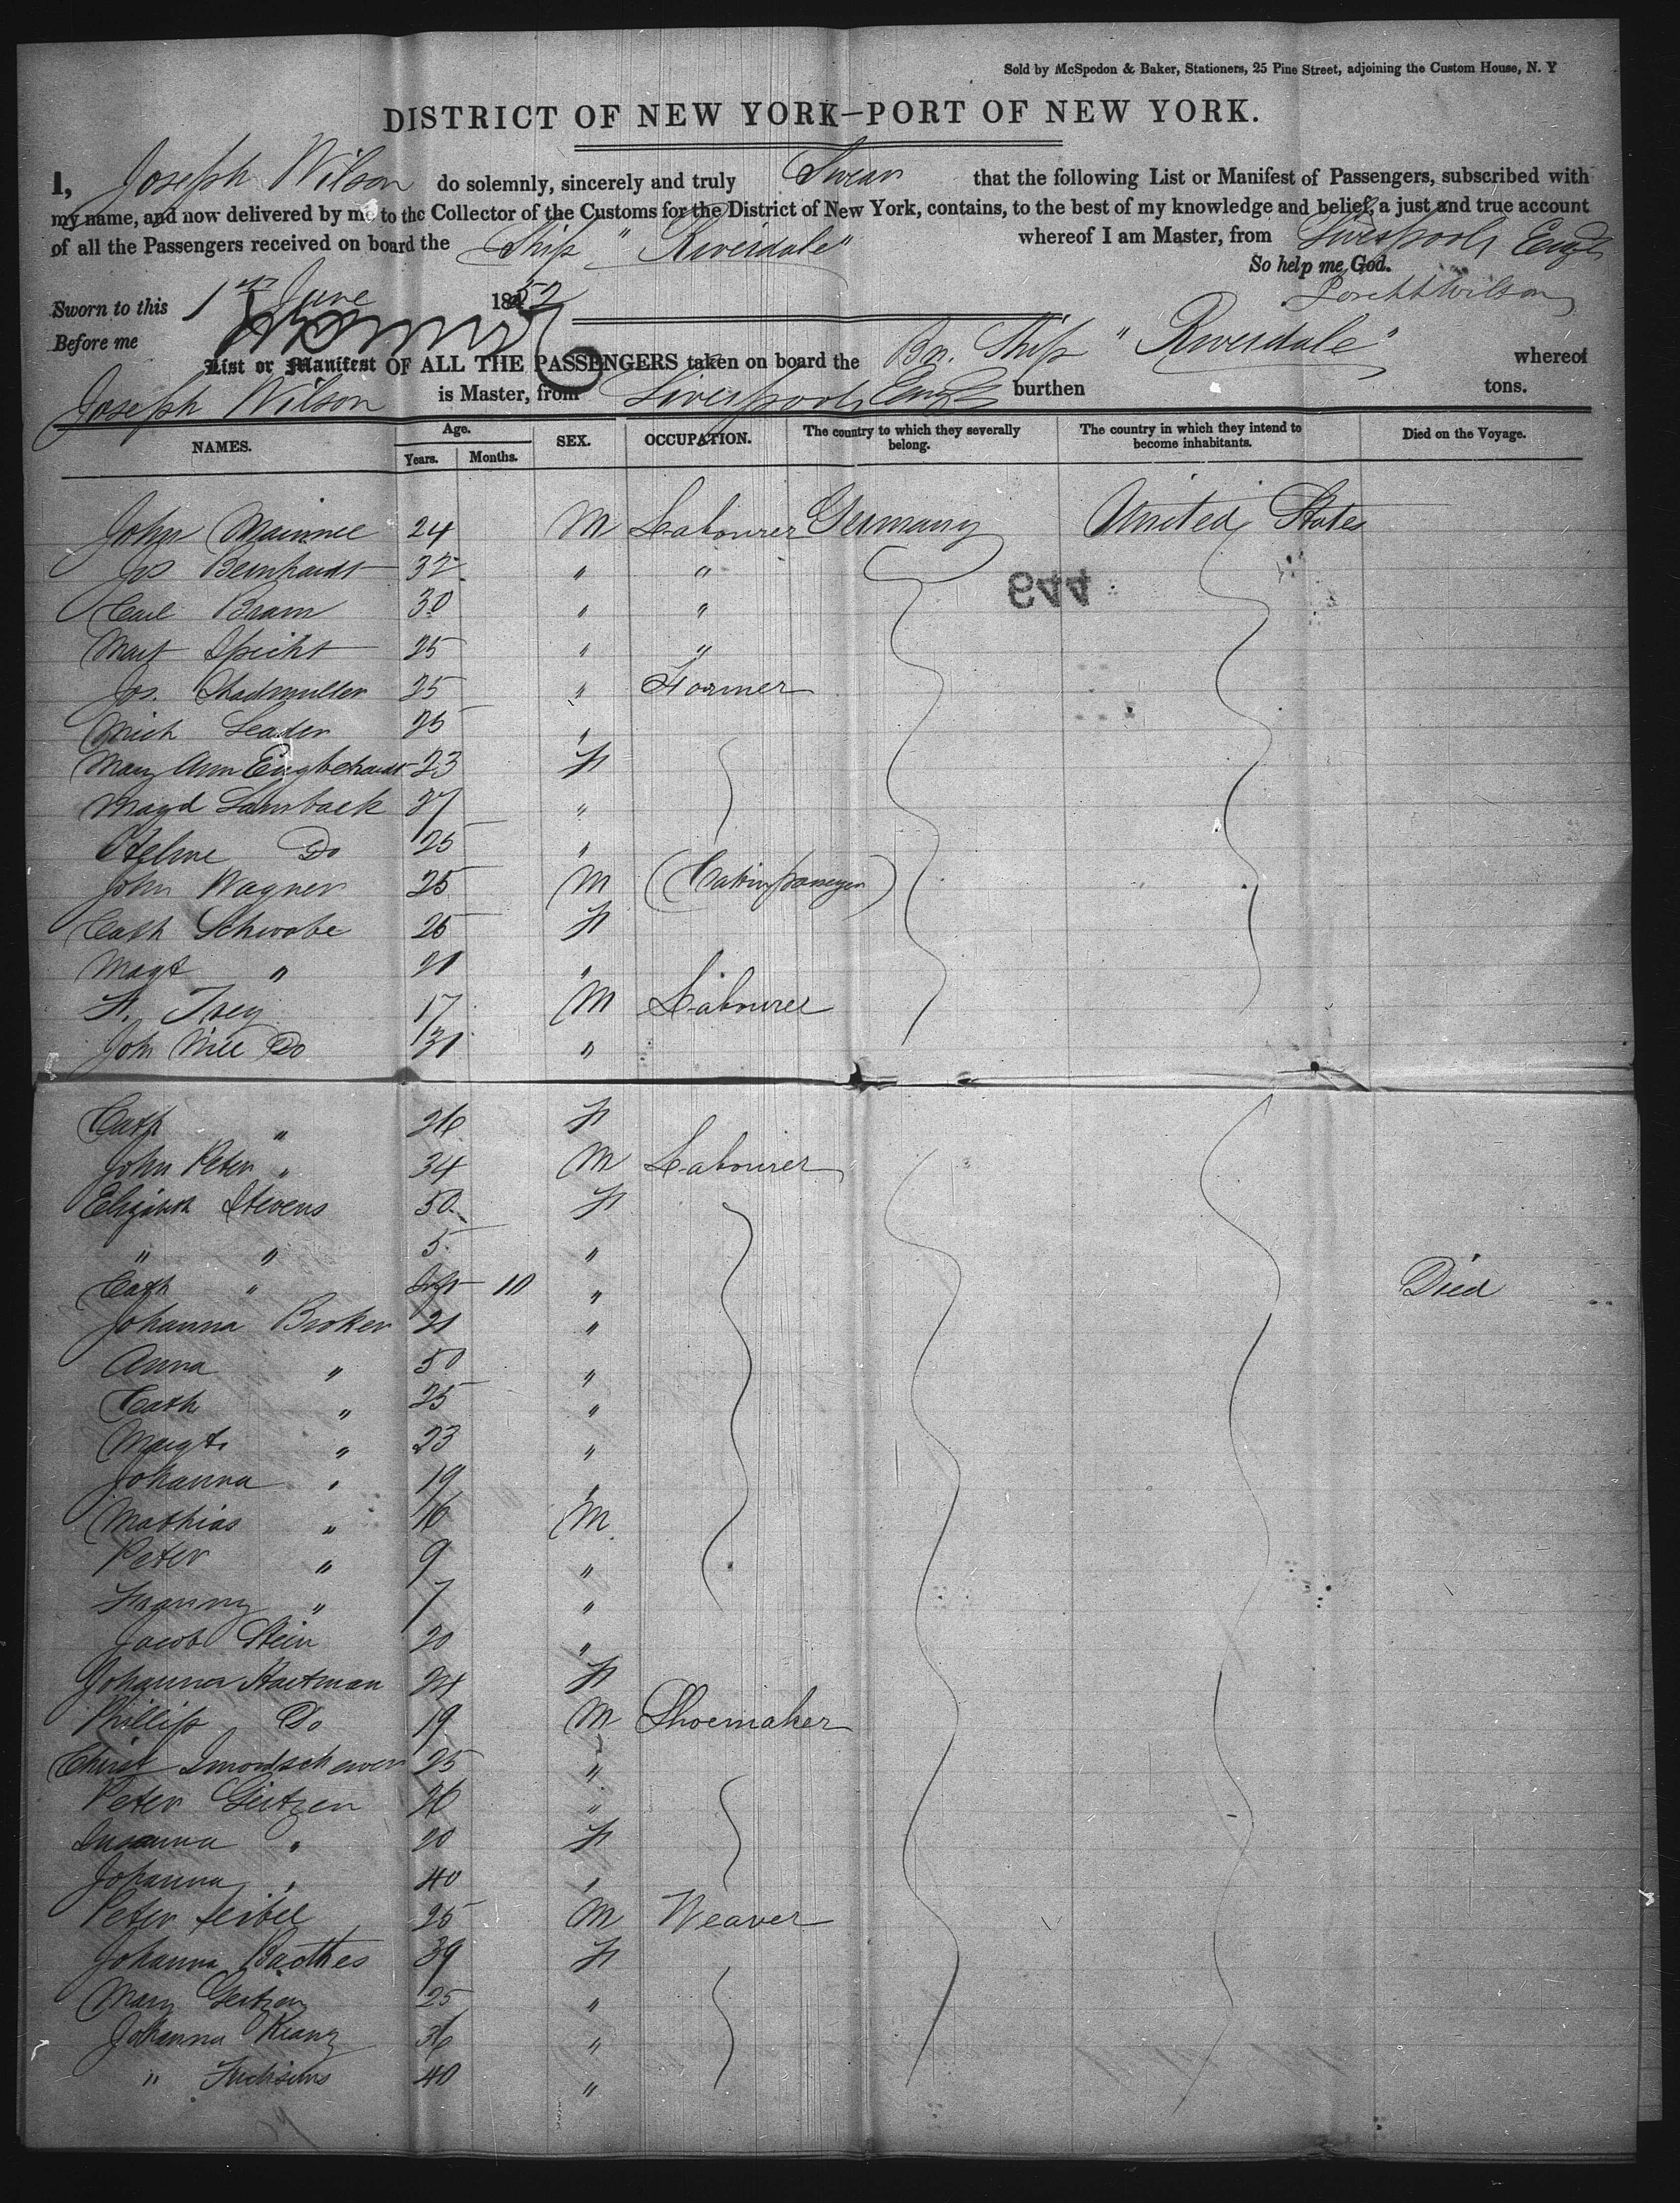 Sold by McSpedon & Baker, Stationers, 25 Pine Street, adjoining the Custom House, N. Y
DISTRICT OF NEW YORK—PORT OF NEW YORK.
I, Joseph Wilson do solemnly, sincerely and truly Swear that the following List or Manifest of Passengers, subscribed with
my name, and now delivered by me to the Collector of the Customs for the District of New York, contains, to the best of my knowledge and belief, a just and true account
of all the Passengers received on board the Ship "Riverdale" whereof I am Master, from Liverpool, Engd
So help me God.
Sworn to this 1st June 1852 Joseph Wilson
Before me
List or Manifest OF ALL THE PASSENGERS taken on board the Br. Ship "Riverdale" whereof
Joseph Wilson is Master, from Liverpool, Engd burthen tons.
NAMES. Age. Years. Months. SEX. OCCUPATION. The country to which they severally belong. The country in which they intend to become inhabitants. Died on the Voyage.
John 24 M Labourer Germany United States
Jos Bernhardt 32 " "
Carl Bram 30 " "
Mart Specht 25 " "
Jos. Shadmuller 25 " Farmer
Mich Leader 25 "
Mary Ann Englehardt 23 F
Magd Lamback 27 "
Helme Do 25 "
John Wagner 25 M (Cabin passenger)
Cath Schwabe 25 F
Magt " 21 "
F. Frey 17 M Labourer
John Do 31 "
Cath " 26 F
John Peter " 34 M Labourer
Elizabth Stevens 50 F
" " 5 "
Cath " Inft 10 " Died
Johanna Broker 21 "
Anna " 50 "
Cath " 25 "
Margt " 23 "
Johanna " 19 "
Mathias " 16 M
Peter " 9 "
Franny " 7 "
Jacob Stein 20 "
Johanna Hartman 24 F
Phillip Do 19 M Shoemaker
Christ 25 "
Peter Geitzen 26 "
Susanna " 20 F
Johanna " 40 "
Peter Seibel 25 M Weaver
Johanna Bacthes 39 F
Mary Geitzen 25 "
Johanna Kranz 36 "
" 40 "